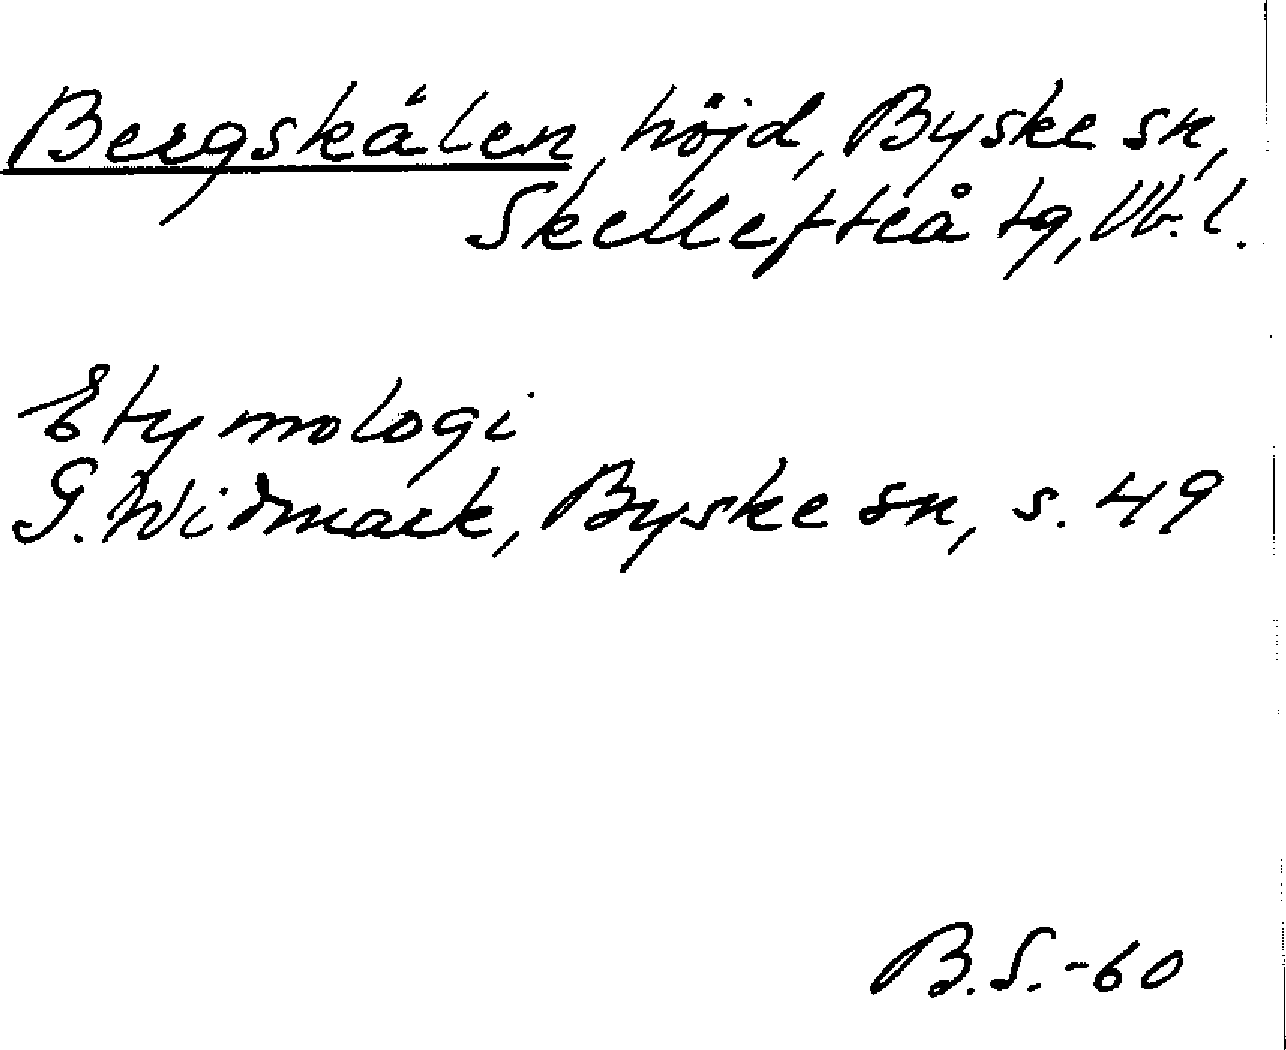 Bergskälen, höjd, Byske sn,
Skellefteå tg, Vb. l.
Etymologi
G. Widmark, Byske sn, s. 49
B.S.-60